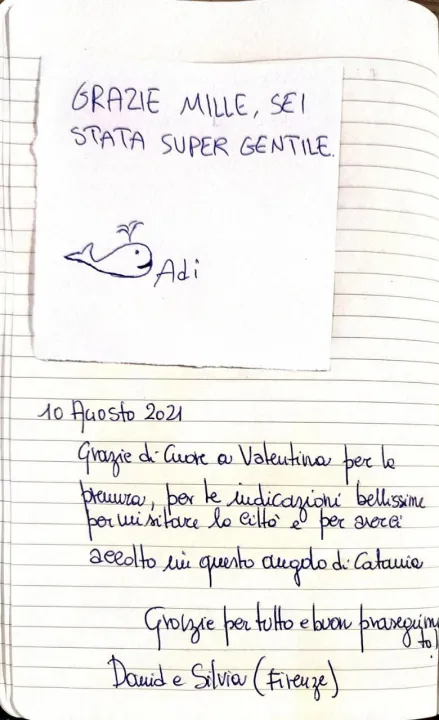 GRAZIE MILLE, SEI
STATA SUPER GENTILE.
Adi
10 Agosto 2021
Grazie di Cuore a Valentina per la
premura, per le indicazioni bellissime
per visitare la città e per averci
accolto in questo angolo di Catania
Grazie per tutto e buon proseguimen
to!
David e Silvia (Firenze)